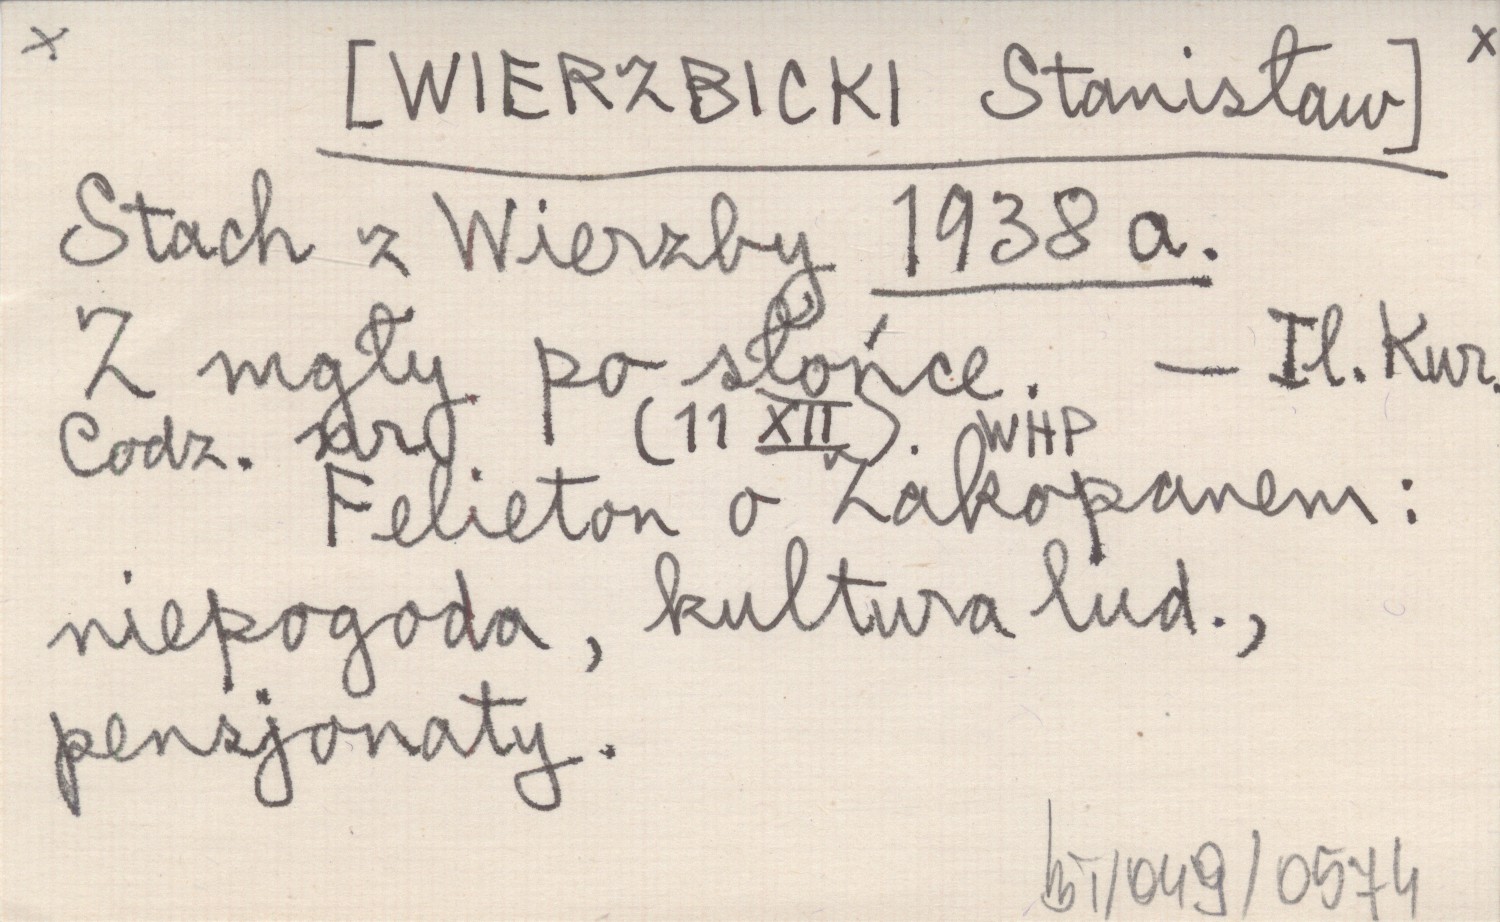 x [WIERZBICKI Stanisław] x
Stach z Wierzby 1938 a.
Z mgły po słońce. — Il. Kur.
Codz. nr (11 XII). WHP
Felieton o Zakopanem:
niepogoda, kultura lud.,
pensjonaty.
/049/0574